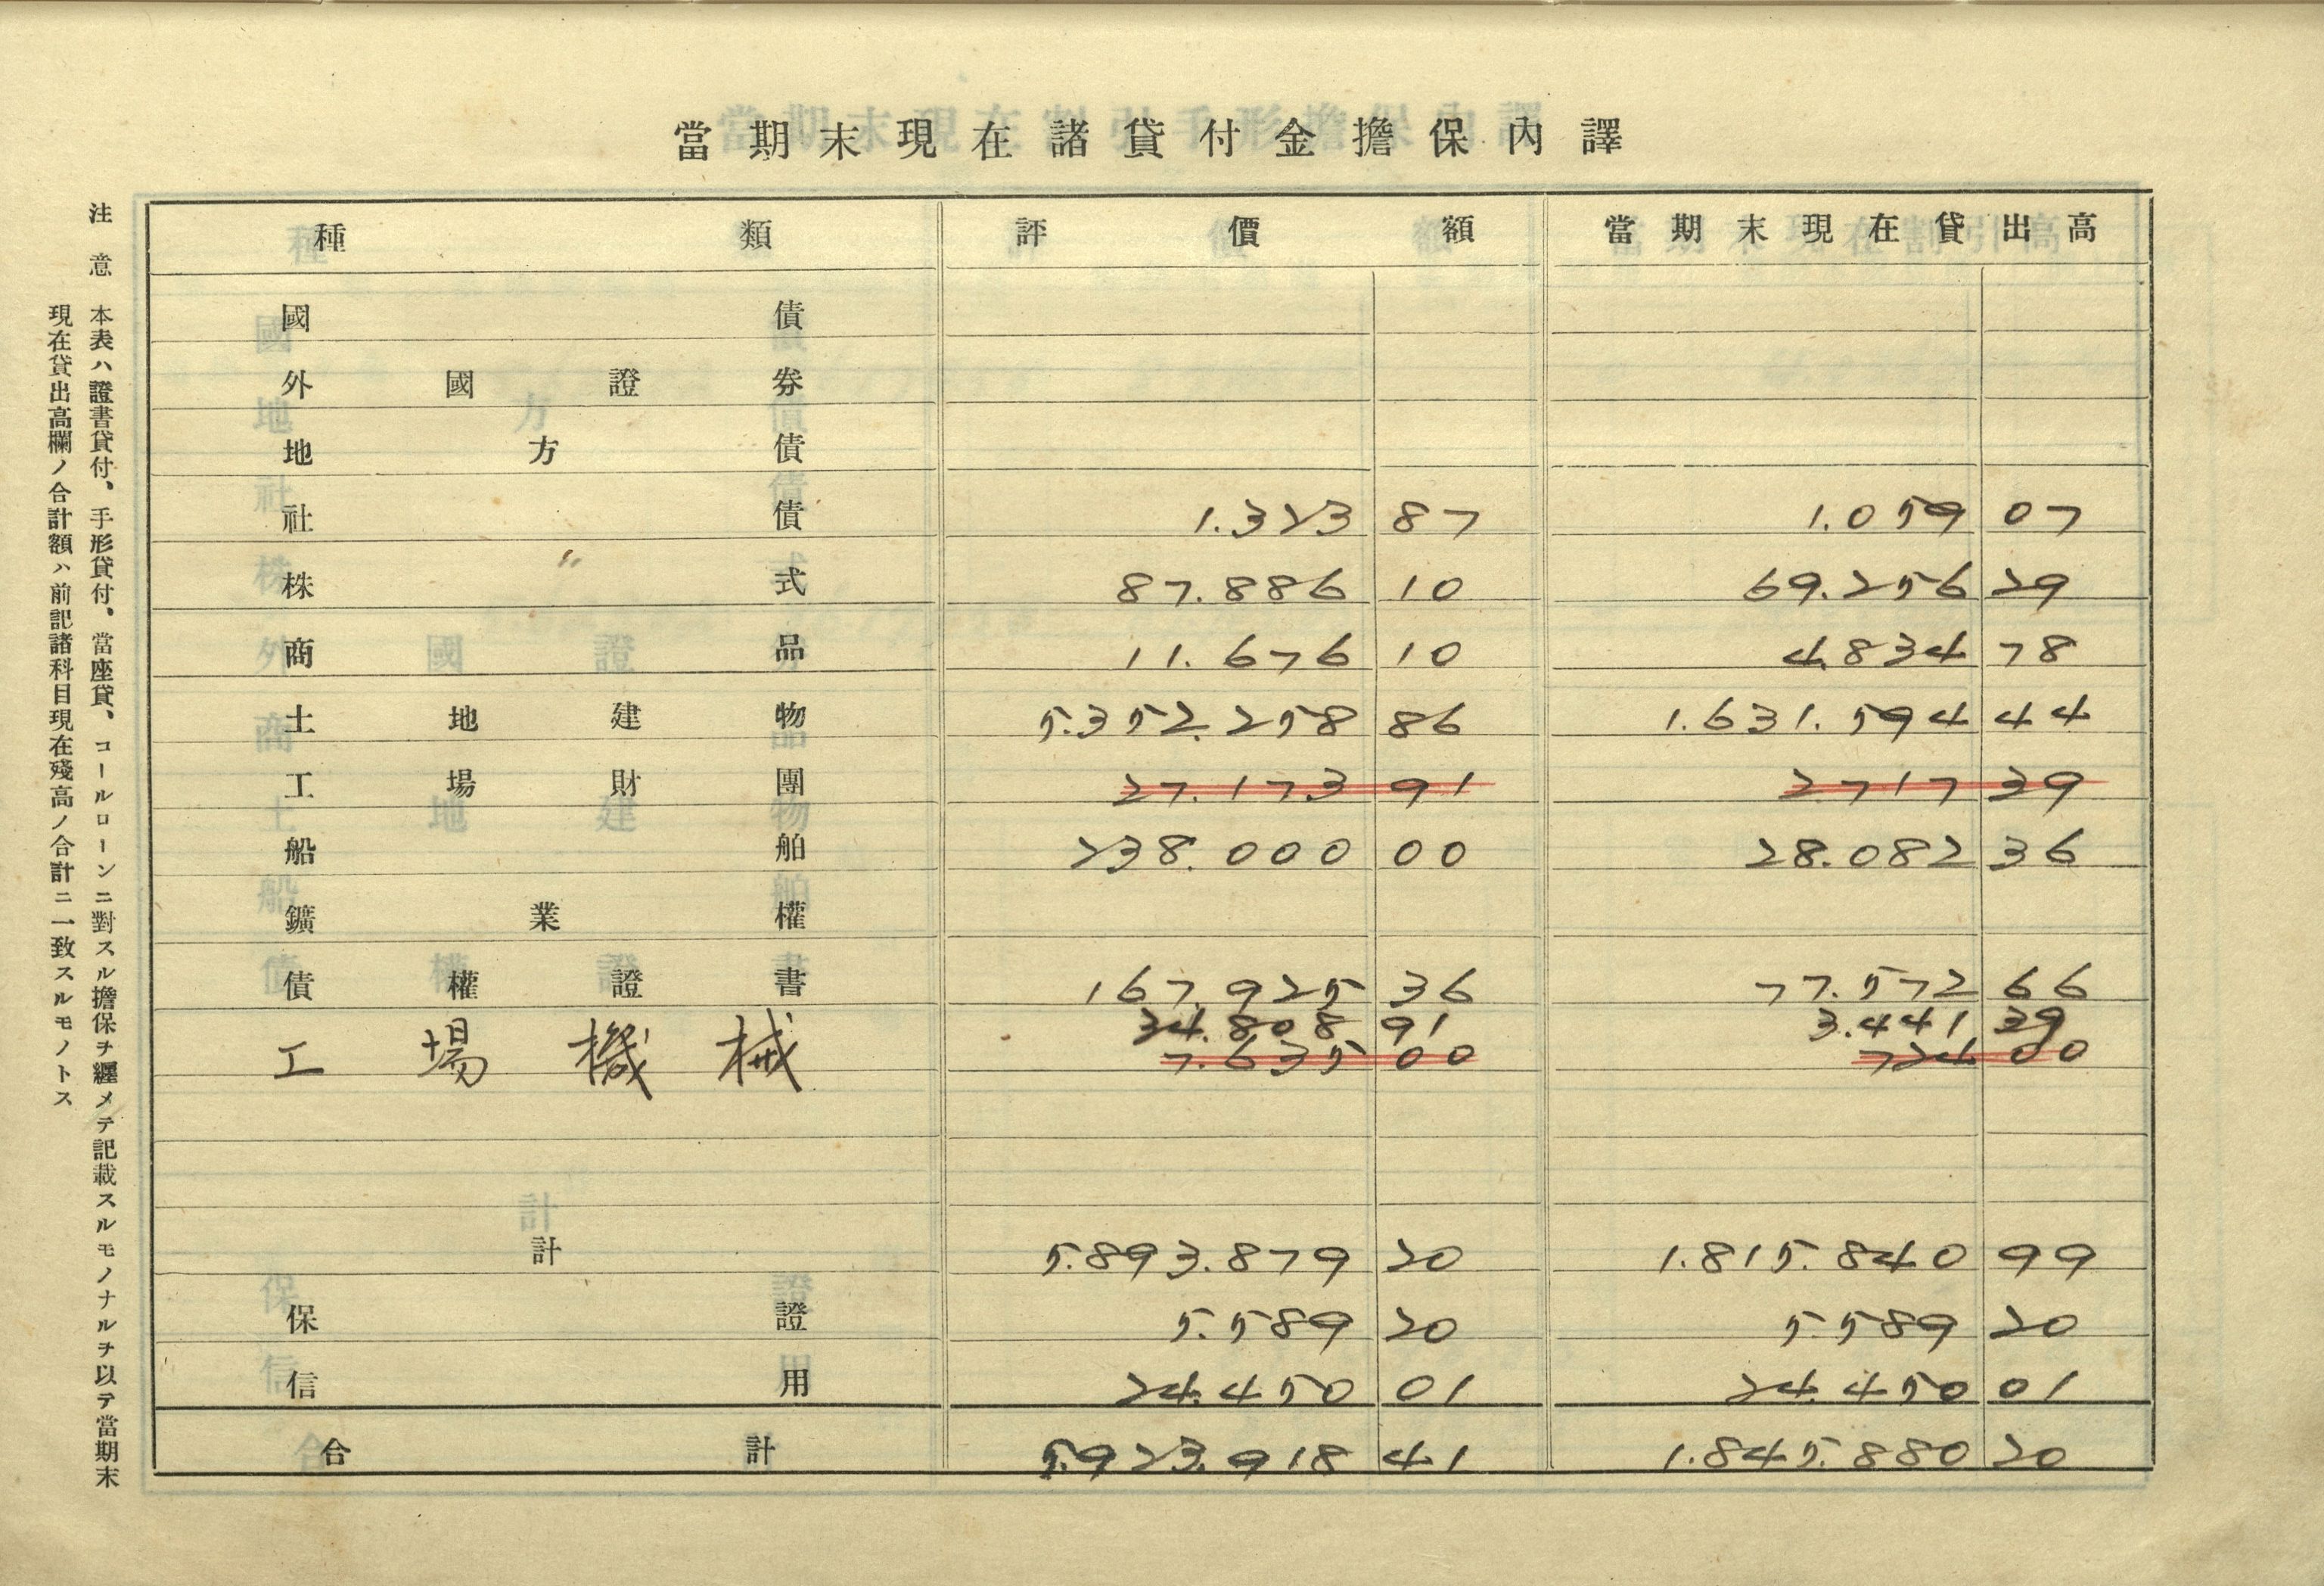 當期末現在諸貸付金擔保內譯
種類 評價額 當期末現在貸出高
國債
外國證券
地方債
社債 1.323 87 1.059 07
株式 87.886 10 69.256 29
商品 11.676 10 4.834 78
土地建物 5.352.258 86 1.631.594 44
工場財團 27.173 91 2717 39
船舶 238.000 00 28.082 36
鑛業權
債權證書 167.925 36 77.572 66
34.808 91 3.441 39
工場機械 7.635 00 724 00
計 5.893.879 20 1.815.840 99
保證 5.589 20 5.589 20
信用 24.450 01 24.450 01
合計 5.923.918 41 1.845.880 20
注意 本表ハ證書貸付、手形貸付、當座貸、コールローンニ對スル擔保ヲ纒メテ記載スルモノナルヲ以テ當期末
現在貸出高欄ノ合計額ハ前記諸科目現在殘高ノ合計ニ一致スルモノトス